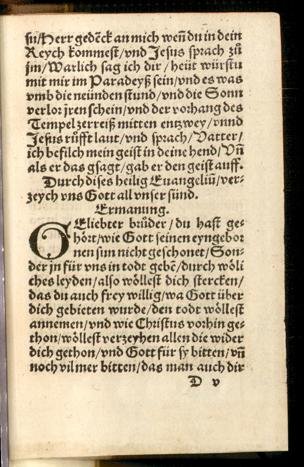 su/Herr gedēck an mich weñ du in dein
Reych kommest/vnd Jesus sprach zů
jm/Warlich sag ich dir/heüt würstu
mit mir im Paradeyß sein/vnd es was
vmb die neünden stund/vnd die Sonn
verlor jren schein/vnd der vorhang des
Tempel zerreiß mitten entzwey/vnnd
Jesus růfft laut/vnd sprach/Vatter/
ich befilch mein geist in deine hend/Vñ
als er das gsagt/gab er den geist auff.
Durch dises heilig Euangeliū/ver-
zeych vns Gott all vnser sünd.
Ermanung.
GEliebter brůder/du hast ge-
hört/wie Gott seinen eyngebor
nen sun nicht geschonet/Son-
der jn für vns in todt gebē/durch wöli
ches leyden/also wöllest dich stercken/
das du auch frey willig/wa Gott über
dich gebieten wurde/den todt wöllest
annemen/vnd wie Christus vorhin ge-
thon/wöllest verzeyhen allen die wider
dich gethon/vnd Gott für sy bitten/vñ
noch vil mer bitten/das man auch dir
D v